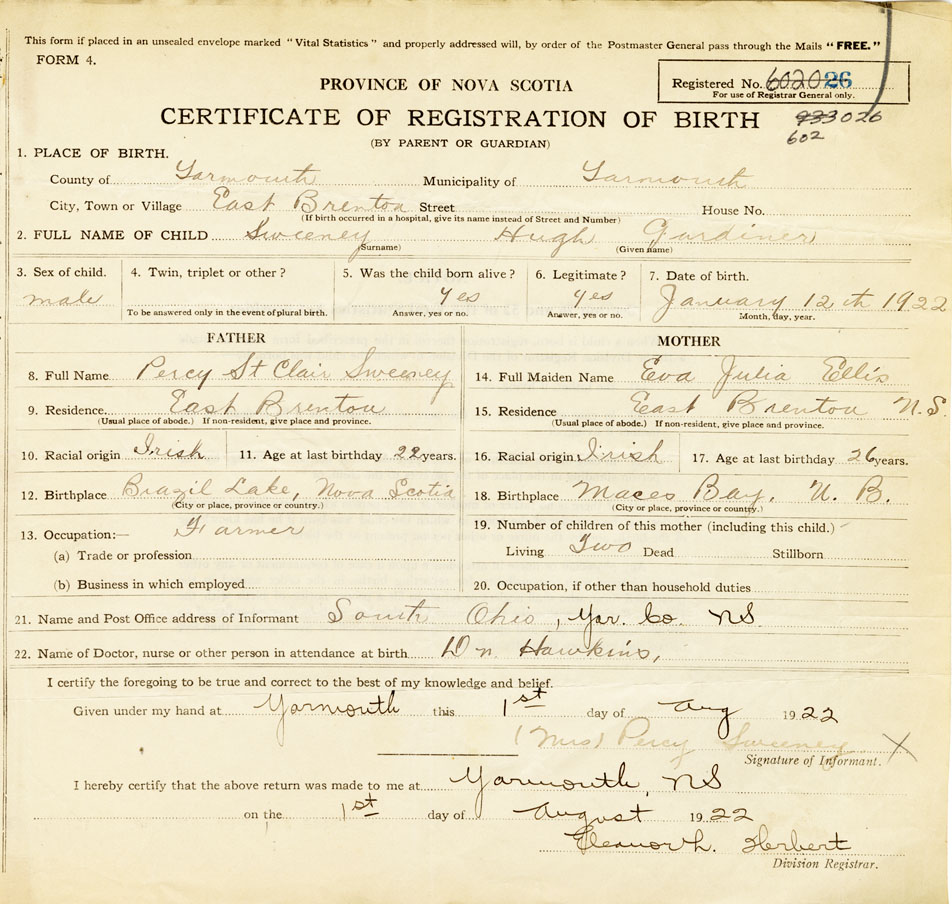 This form if placed in an unsealed envelope marked "Vital Statistics" and properly addressed will, by order of the Postmaster General pass through the Mails "FREE."
FORM 4.
PROVINCE OF NOVA SCOTIA
Registered No. 602026
For use of Registrar General only.
CERTIFICATE OF REGISTRATION OF BIRTH
933026
602
(BY PARENT OR GUARDIAN)
1. PLACE OF BIRTH.
County of Yarmouth Municipality of Yarmouth
City, Town or Village East Brenton Street House No.
(If birth occurred in a hospital, give its name instead of Street and Number)
2. FULL NAME OF CHILD Sweeney Hugh Gardiner
(Surname) (Given name)
3. Sex of child. 4. Twin, triplet or other? 5. Was the child born alive? 6. Legitimate? 7. Date of birth.
male yes yes January 12th 1922
To be answered only in the event of plural birth. Answer, yes or no. Answer, yes or no. Month, day, year.
FATHER MOTHER
8. Full Name Percy St Clair Sweeney 14. Full Maiden Name Eva Julia Ellis
9. Residence. East Brenton 15. Residence East Brenton N.S.
(Usual place of abode.) If non-resident, give place and province. (Usual place of abode.) If non-resident, give place and province.
10. Racial origin Irish 11. Age at last birthday 22 years. 16. Racial origin Irish 17. Age at last birthday 26 years.
12. Birthplace Brazil Lake, Nova Scotia 18. Birthplace Maces Bay. N. B.
(City or place, province or country.) (City or place, province or country.)
13. Occupation:— Farmer 19. Number of children of this mother (including this child.)
(a) Trade or profession Living Two Dead Stillborn
(b) Business in which employed 20. Occupation, if other than household duties
21. Name and Post Office address of Informant South Ohio, Yar. Co. NS.
22. Name of Doctor, nurse or other person in attendance at birth Dr. Hawkins,
I certify the foregoing to be true and correct to the best of my knowledge and belief.
Given under my hand at Yarmouth this 1st day of Aug 1922
(Mrs) Percy Sweeney X
Signature of Informant.
I hereby certify that the above return was made to me at Yarmouth, NS
on the 1st day of August 1922
Eleanor L. Herbert
Division Registrar.